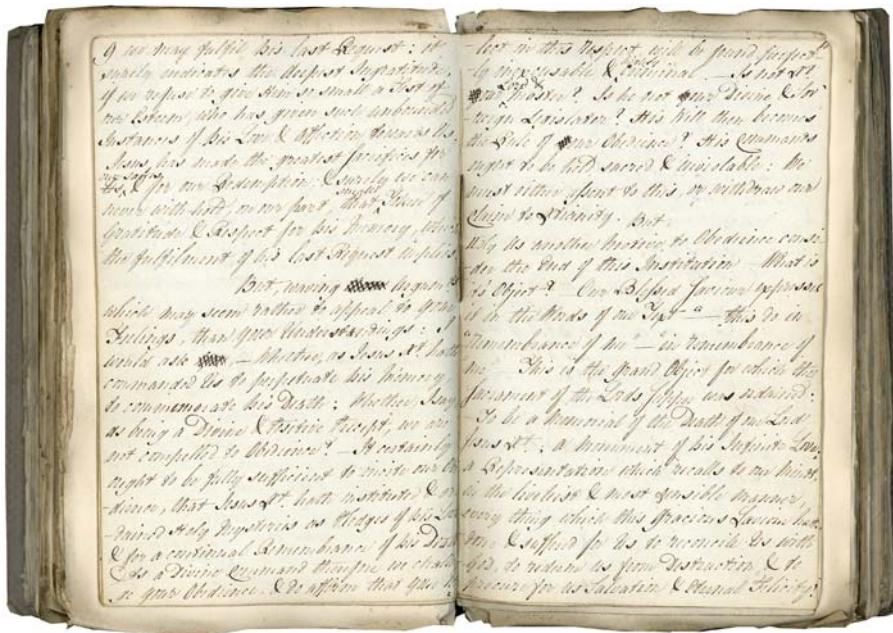 9 we may fulfil his last Request: it
surely indicates the deepest Ingratitude,
if we refuse to give Him so small a Test of
our Esteem, who has given such unbounded
Instances of his Love & affection towards Us.
Jesus has made the greatest Sacrifices for
our Sakes
& for our Redemption: & surely we can
never with-hold, on our part, that small Token of
Gratitude & Respect for his Memory, which
the fulfilment of his last Request implies.
But, waving Argumts
which may seem rather to appeal to Your
Feelings, than Your Understandings: I
would ask, — Whether, as Jesus Xt. hath
commanded Us to perpetuate his Memory
to commemorate his Death: Whether, I say
as being a Divine & Positive Precept, we are
not compelled to Obedience? — It certainly
ought to be fully sufficient to incite our Obe-
dience, that Jesus Xt. hath instituted & or-
dained Holy Mysteries as Pledges of his Love
& for a continual Remembrance of his Death
As a Divine Command therefore we challen-
ge your Obedience, & do affirm that your
-lect in this respect, will be found
inexcusable & criminal. — Is not Xt.
Lord &
our Master? Is he not our Divine & Sov-
reign Legislator? His Will then becomes
the Rule of our Obedience? His Commands
ought to be held sacred & inviolable: We
must either assent to this, or withdraw our
Claim to Xtianity. But
as another Motive, to Obedience consi-
der the End of this Institution — What is
it's Object? — Our Blessed Saviour expresses
it in the Words of our Text — "this do in
"remembrance of me" — "in remembrance of
me — This is the grand Object for which the
Sacrament of the Lords Supper was ordained:
To be a Memorial of the Death of our Lord
Jesus Xt.: a Monument of his Infinite Love:
a Representation which recalls to our Minds,
in the liveliest & most sensible manner,
every thing which this gracious Saviour hath
done & suffered for Us to reconcile Us with
God, to redeem us from Destruction, & to
procure for us Salvation & Eternal Felicity.